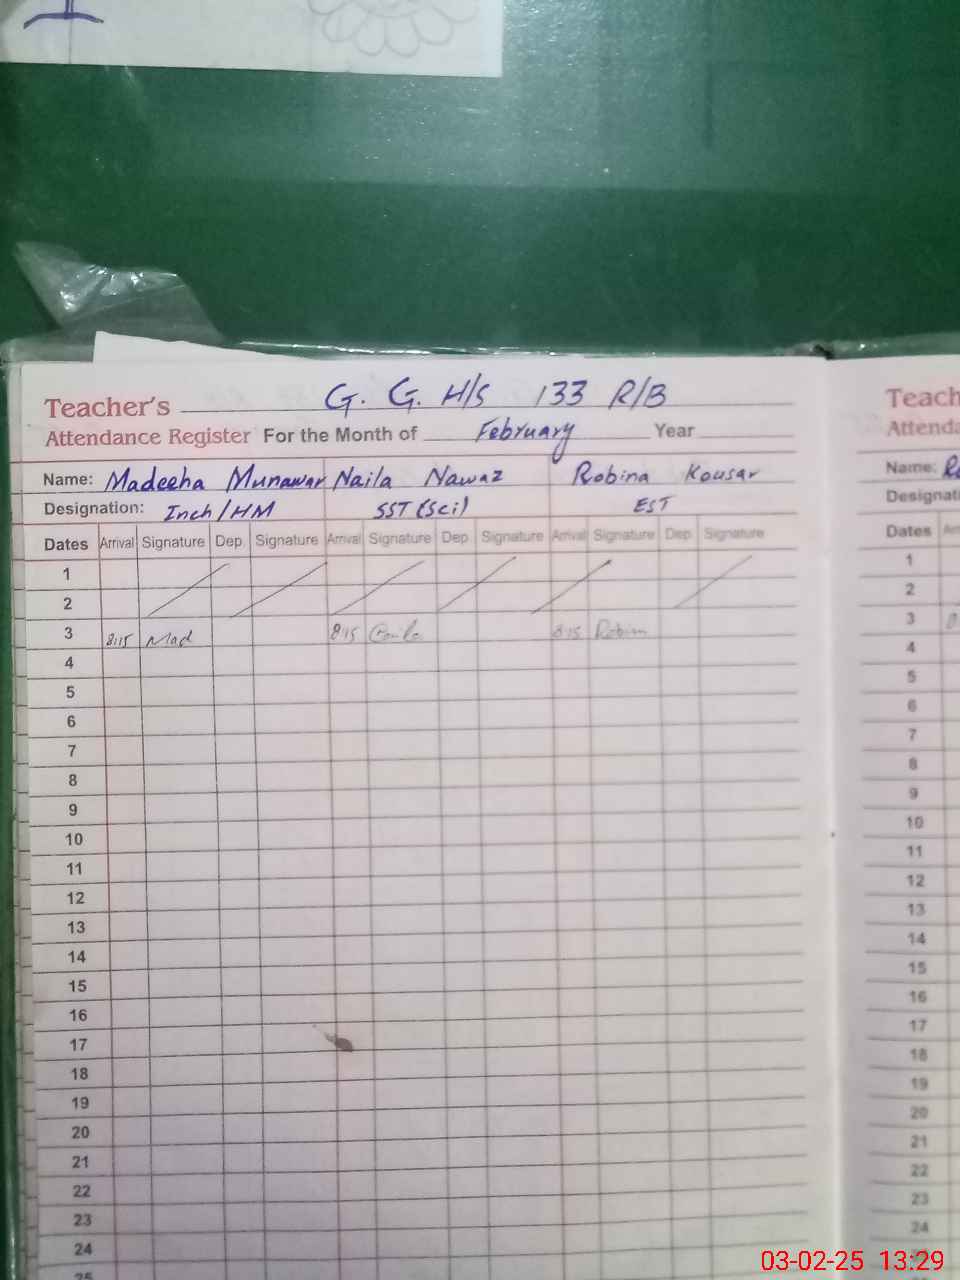 Teacher's G. G. H/S 133 R/B
Attendance Register For the Month of February Year
Name: Madeeha Munawar Naila Nawaz Robina Kousar
Designation: Inch/HM SST (Sci) EST
Dates Arrival Signature Dep. Signature Arrival Signature Dep. Signature Arrival Signature Dep. Signature
1
2
3 8:15 Mad 8:15 8:15 Robina
4
5
6
7
8
9
10
11
12
13
14
15
16
17
18
19
20
21
22
23
24
25
Teach
Attenda
Name: Ro
Designati
Dates Arr
1
2
3 8
4
5
6
7
8
9
10
11
12
13
14
15
16
17
18
19
20
21
22
23
24
03-02-25 13:29